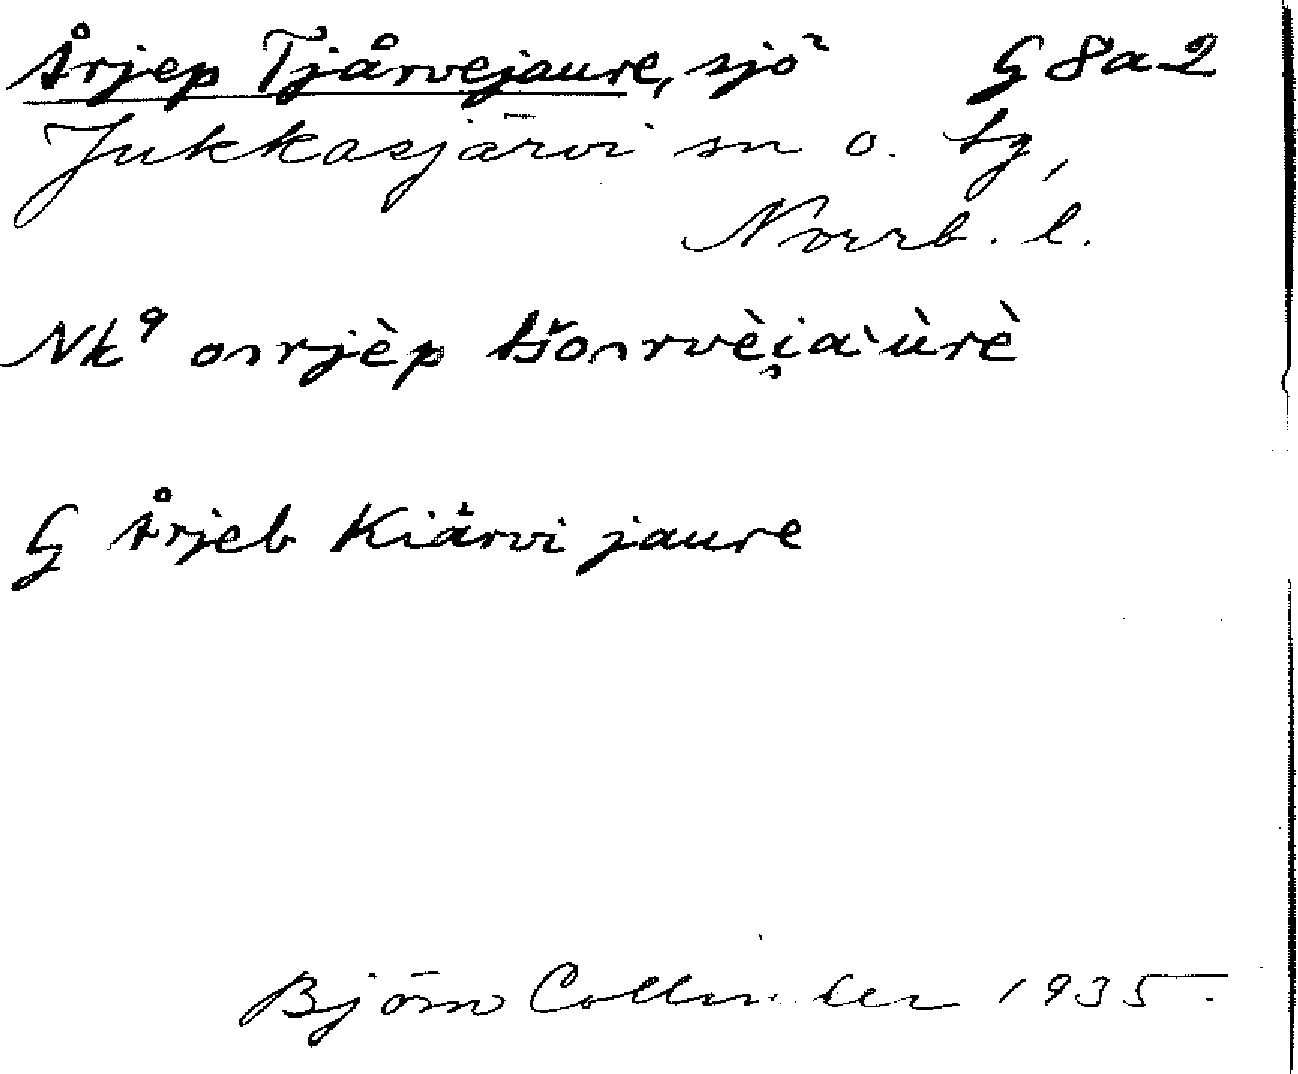 Årjep Tjårvejaure, sjö G 8a2
Jukkasjärvi sn o. tg,
Norrb. l.
Nk⁹ onrjèp
G Årjeb Kiårvi jaure
Björn Collinder 1935.